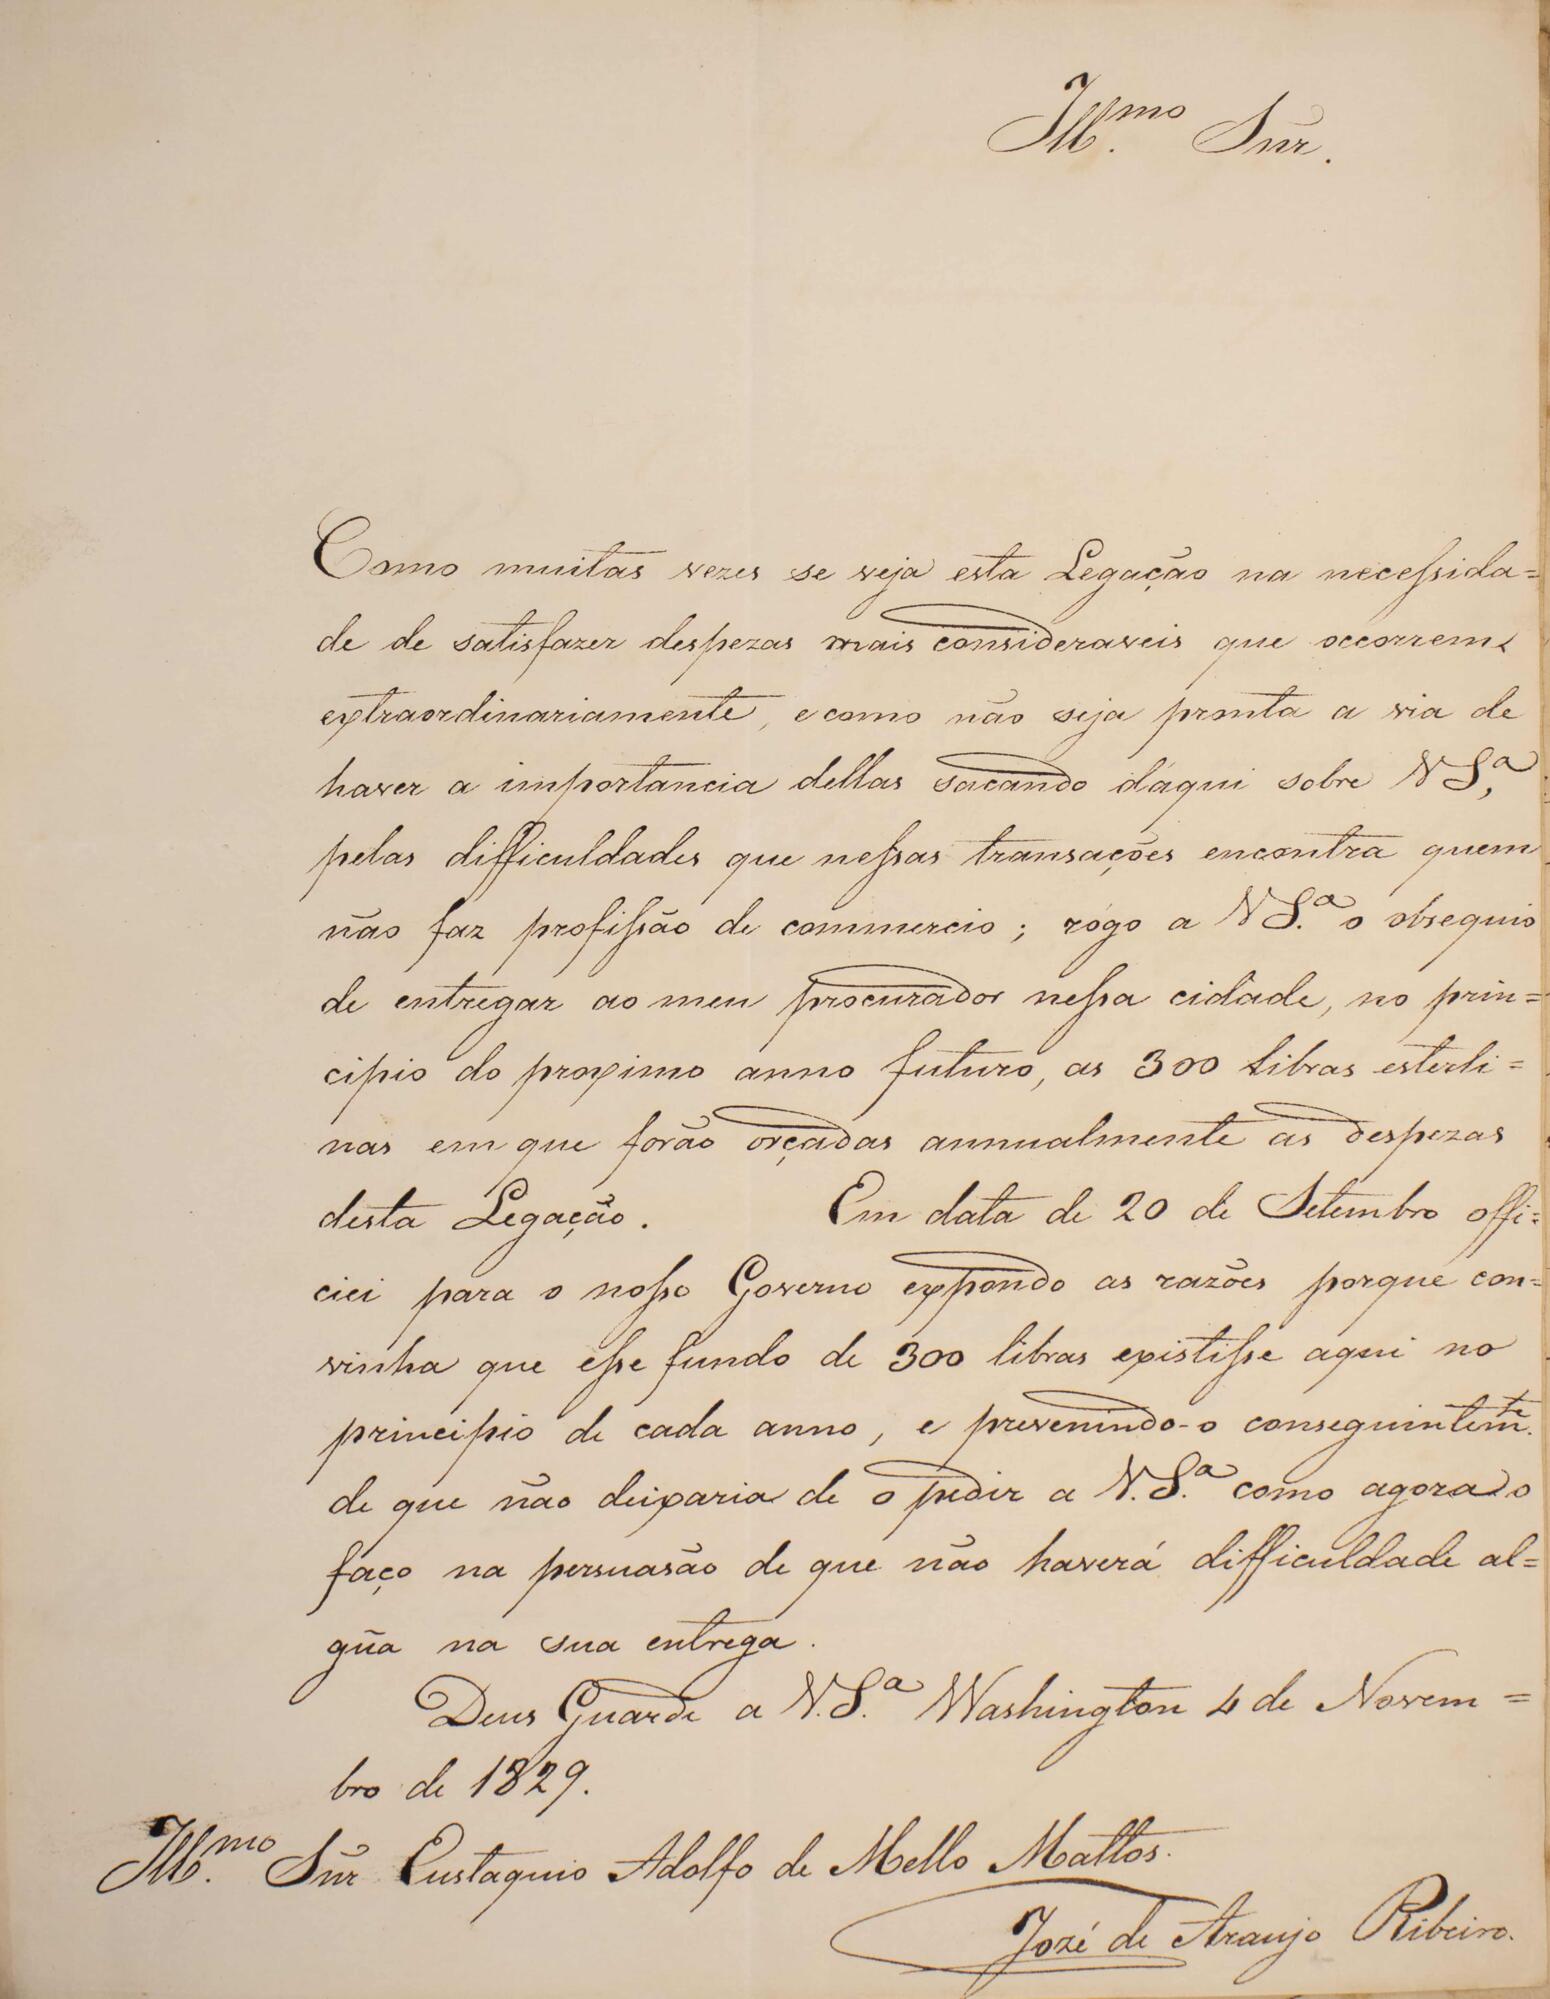 Ill.mo Sñr.
Como muitas vezes se veja esta Legação na necessida=
de de satisfazer despezas mais consideraveis que occorrem
extraordinariamente, e como não seja pronta a via de
haver a importancia dellas sacando d'aqui sobre V S.a,
pelas difficuldades que nessas transações encontra quem
não faz profissão de commercio; rógo a V S.a o obsequio
de entregar ao meu procurador nessa cidade, no prin=
cipio do proximo anno futuro, as 300 libras esterli=
nas em que forão orçadas annualmente as despezas
desta Legação. Em data de 20 de Setembro offi=
ciei para o nosso Governo expondo as razões porque con=
vinha que esse fundo de 300 libras existisse aqui no
principio de cada anno, e prevenindo-o conseguintem.te
de que não deixaria de o pedir a V.S.a como agora o
faço na persuasão de que não haverá difficuldade al=
gũa na sua entrega.
Deus Guarde a V.S.a Washington 4 de Novem=
bro de 1829.
Ill.mo Sñr Eustaquio Adolfo de Mello Mattos.
Jozé de Araujo Ribeiro.